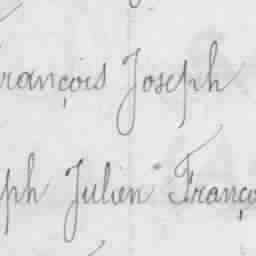 rançois Joseph
ph Julien Franço